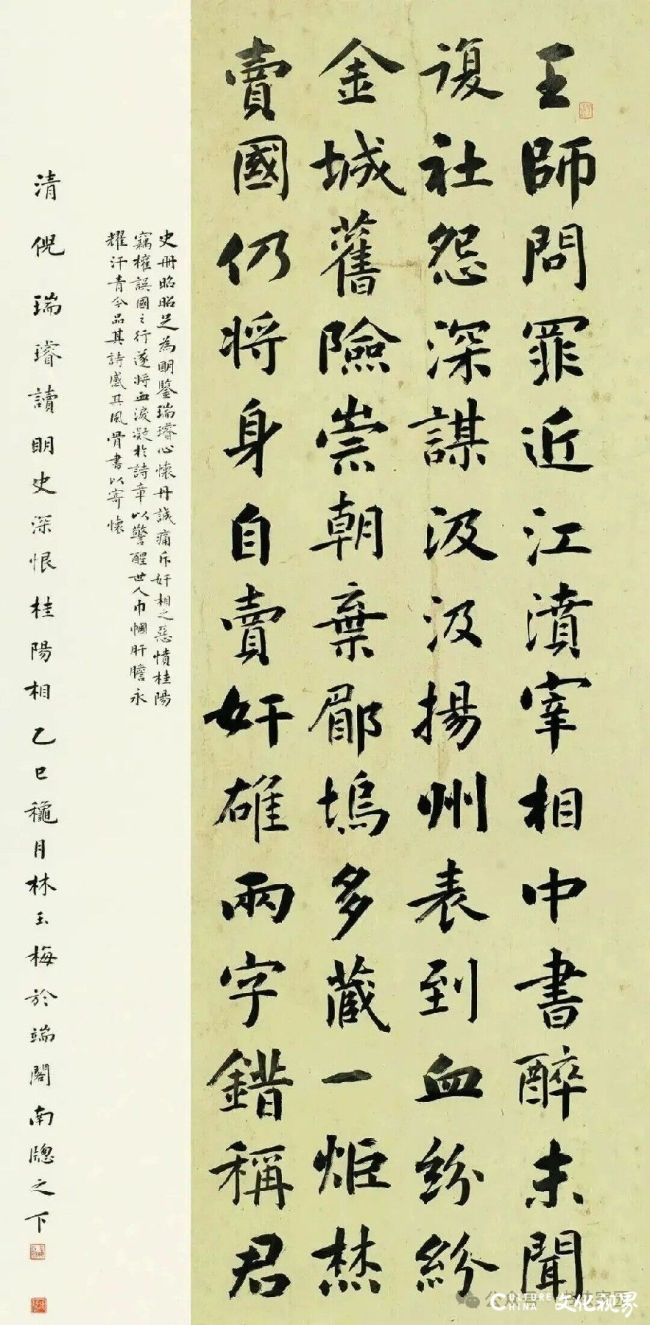 王師問罪近江濆宰相中書醉未聞
復社怨深謀汲汲揚州表到血紛紛
金城舊險崇朝棄郿塢多藏一炬焚
賣國仍將身自賣奸雄兩字錯稱君
史册昭昭足為明鑒瑞璿心懷丹誠痛斥奸相之惡憤桂陽
竊權誤國之行遂將血淚凝於詩章以警醒世人巾幗肝膽永
耀汗青今品其詩感其風骨書以寄懷
清倪瑞璿讀明史深恨桂陽相乙巳龝月林玉梅於端閣南牕之下
CULTURE
CHINA
文化视界